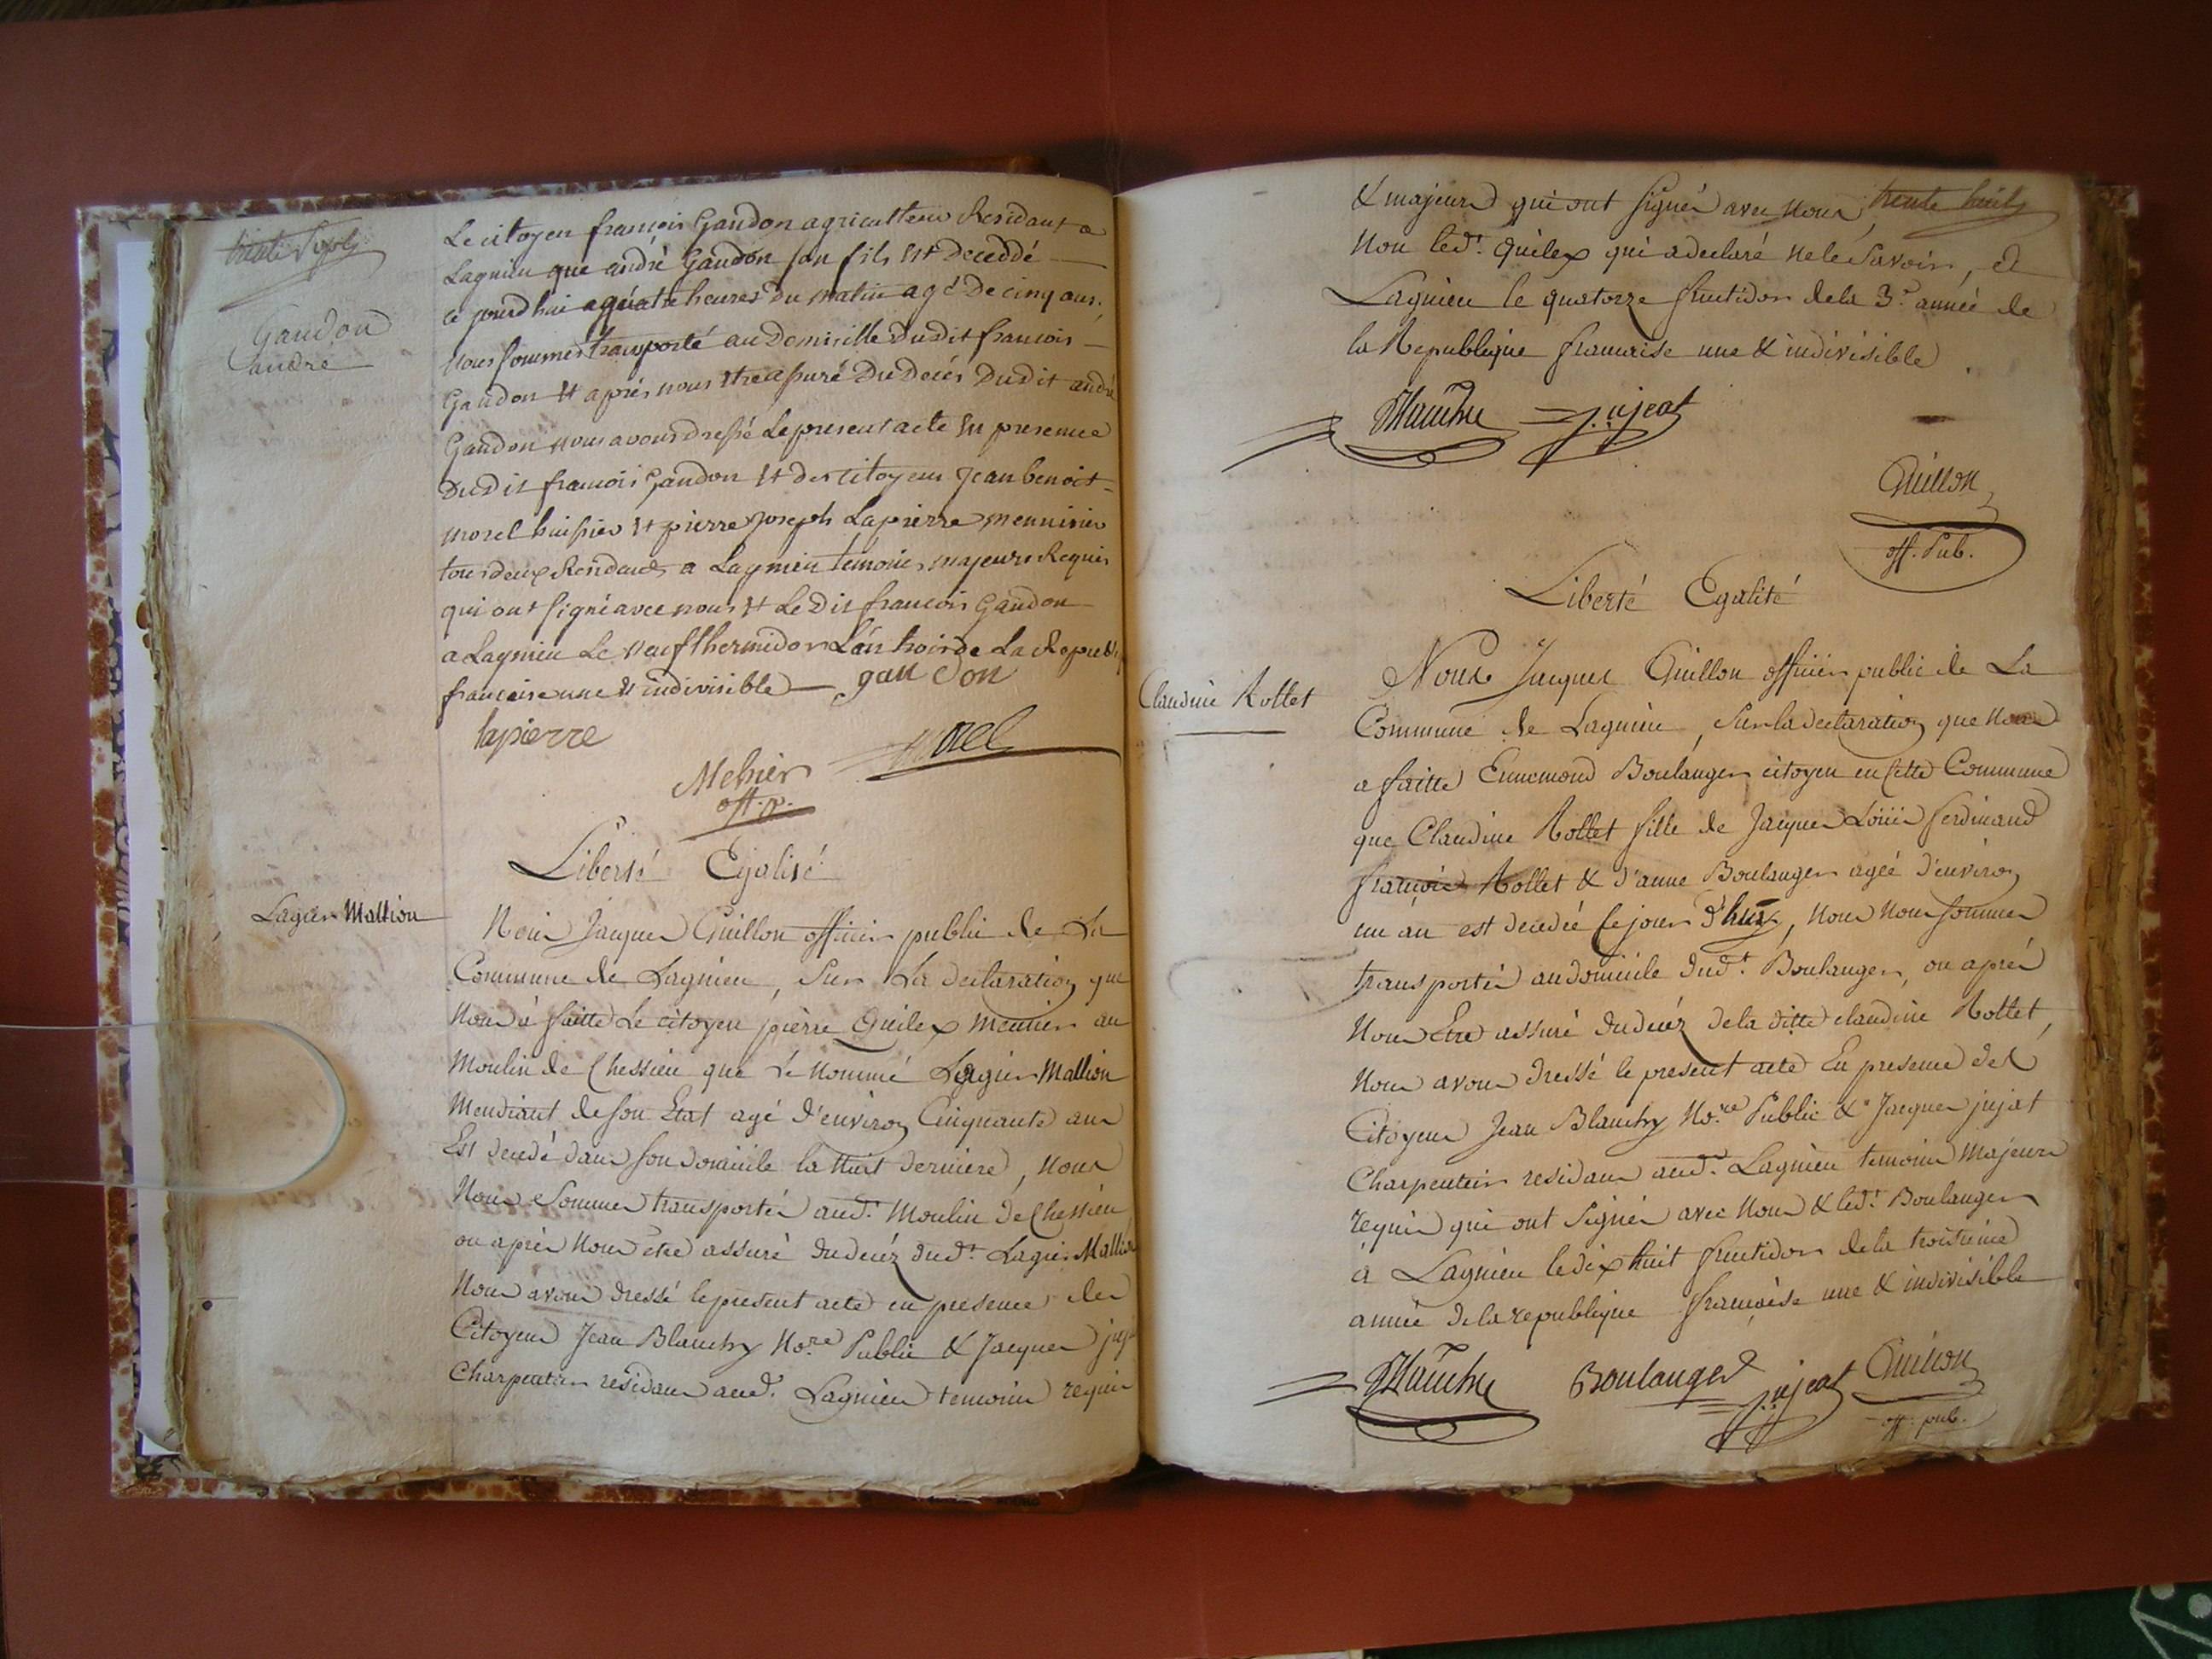 trente Sept
Gandon
andre
Le citoyen francois Gandon agriculteur Residant a
Lagnieu que andré Gandon son fils est deceddé
ce jourd'hui a quatre heures du matin agé de cinq ans,
nous sommes transporté au domicille dudit francois
Gandon et aprés nous etre assuré du decés dudit andré
Gandon nous avons dressé le present acte en presence
dudit francois Gandon et des citoyens Jean benoit
morel huissier et pierre joseph Lapierre mennisier
tous deux Residents a Lagnieu temoins majeurs Requis
qui ont signé avec nous et Le dit francois Gandon
a Lagnieu Le neuf thermidor L'an trois de La Republi
francaise une et indivisible gandon
lapierre
morel
off. p.
Liberté Egalité
Lagier Mallion
Nous Jacques Guillon officier public de La
Commune de Lagnieu, Sur La declaration que
Nous à faitte Le citoyen pierre Quilex meunier au
Moulin de Chessieu que Le nommé Lagier Mallion
Mendiant de son Etat agé d'environ Cinquante ans
Est decedé dans son domicile la Nuit derniere, nous
Nous Sommes transportés aud.t Moulin de Chessieu
ou aprés Nous étre assuré du decéz dud.t Lagier Mallion
Nous avons dressé le present acte en presence des
Citoyens Jean Blanchy No.re Public & Jacques juj
Charpentier residans aud.t Lagnieu temoins requis
& majeurs qui ont Signés avec Nous, trente huit
Non led.t Quilex qui a declaré ne le Savoir, et
Lagnieu le quatorze fructidor de la 3.e année de
la Republique francaise une & indivisible
Blanchy jujeat
Guillon
off. Pub.
Liberté Egalité
Claudine Rollet
Nous Jacques Guillon officier public de La
Commune de Lagnieu, Sur la declaration que Nous
a faitte Ennemond Boulanger citoyen en Cette Commune
que Claudine Rollet fille de Jacques Loüis ferdinand
françois Rollet & d'anne Boulanger agée d'environ
un an est decedée Cejour d'huy, Nous Nous sommes
transportés au domicile dud.t Boulanger, ou aprés
Nous Etre assuré du decéz de la ditte claudine Rollet,
Nous avons dressé le present acte En presence des
Citoyens Jean Blanchy No.re Public & Jacques jujat
Charpentier residans aud.t Lagnieu temoins Majeurs
requis qui ont Signés avec Nous & led.t Boulanger
à Lagnieu le dix huit fructidor de la troisieme
année de la republique française une & indivisible
Blanchy Boulanger jujeat Guillon
off. pub.